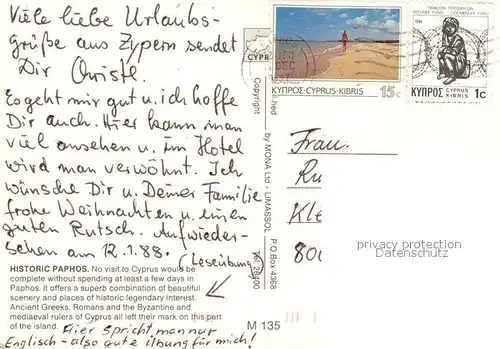 Viele liebe Urlaubs-
grüße aus Zypern sendet
Dir Christl.
Es geht mir gut u. ich hoffe
Dir auch. Hier kann man
viel ansehen u. im Hotel
wird man verwöhnt. Ich
wünsche Dir u. Deiner Familie
frohe Weihnachten u. einen
guten Rutsch. Aufwieder-
sehen am 12.1.88.
(Leseübung)
HISTORIC PAPHOS. No visit to Cyprus would be
complete without spending at least a few days in
Paphos. It offers a superb combination of beautiful
scenery and places of historic legendary interest.
Ancient Greeks. Romans and the Byzantine and
mediaeval rulers of Cyprus all left their mark on this part
of the island.
Hier spricht man nur
Englisch - also gute Übung für mich!
M 135
Copyright
by MONA Ltd - LIMASSOL P.O.Box 4368
Tel. 26400
CYPR
ΚΥΠΡΟΣ-CYPRUS-KIBRIS 15c
ΚΥΠΡΟΣ CYPRUS KIBRIS 1c
Frau
Ru
Kle
800
privacy protection
Datenschutz